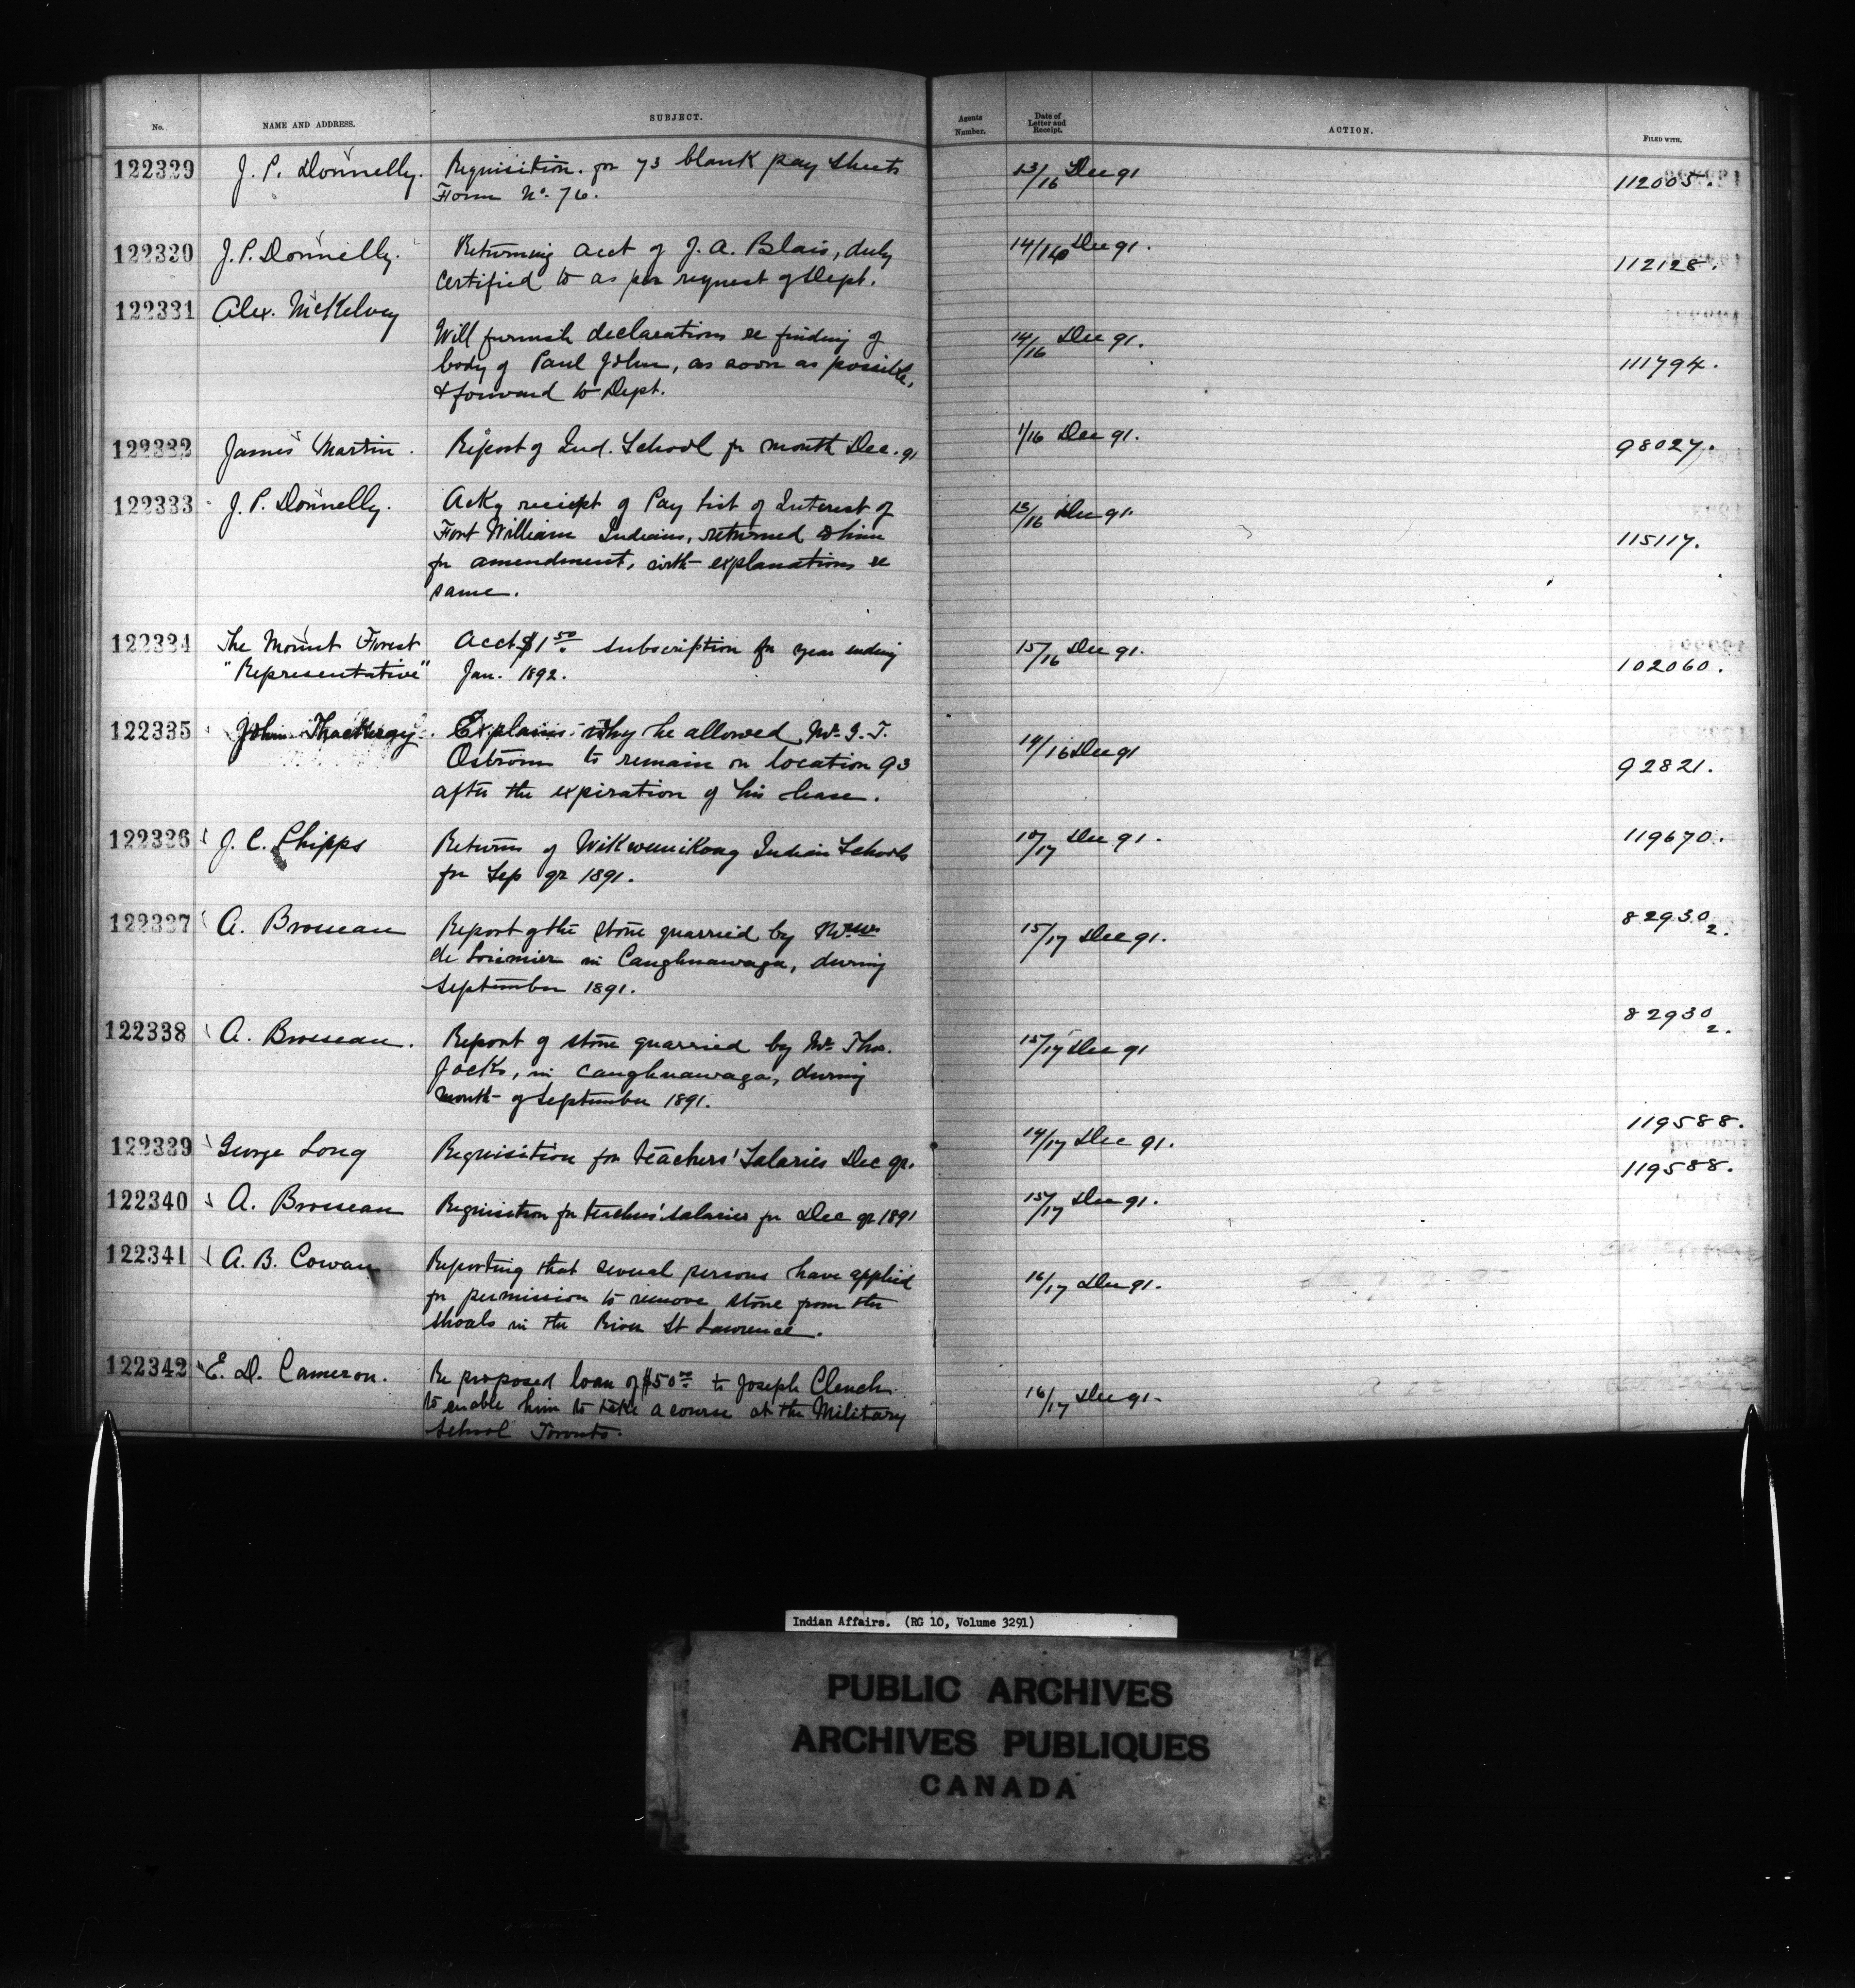 No. NAME AND ADDRESS. SUBJECT. Agents Number. Date of Letter and Receipt. ACTION. FILED WITH.
122329 J. P. Donnelly. Requisition. for 73 blank pay sheets 13/16 Dec 91 112005.
Form No. 76.
122330 J. P. Donnelly. Returning acct of J. A. Blais, duly 14/16 Dec 91. 112128.
certified to as per request of Dept.
122331 Alex. McKelvey
Will furnish declarations re finding of 14/16 Dec 91.
body of Paul John, as soon as possible, 111794.
& forward to Dept.
122332 James Martin. Report of Ind. School for month Dec. 91 1/16 Dec 91. 98027.
122333 J. P. Donnelly. Ackg reciept of Pay List of Interest of 13/16 Dec 91.
Fort William Indians, returned to him 115117.
for amendment, with explanations re
same.
122334 The Mount Forest Acct $1 50 subscription for year ending 15/16 Dec 91.
"Representative" Jan. 1892. 102060.
122335 John Thackeray. Explains why he allowed Mr. G. T. 14/16 Dec 91
Ostrom to remain on location 93 92821.
after the expiration of his lease.
122336 J. C. Phipps Returns of Wikwemikong Indian Schools 10/17 Dec 91. 119670.
for Sep qr 1891.
122337 A. Brosseau Report of the stone quarried by 15/17 Dec 91. 82930 2.
de Lorimier in Caughnawaga, during
September 1891.
122338 A. Brosseau. Report of stone quarried by Mr. Thos. 15/17 Dec 91 82930 2.
Jocks, in Caughnawaga, during
month of September 1891.
122339 George Long Requisition for teachers' Salaries Dec qr. 14/17 Dec 91. 119588.
122340 A. Brosseau Requisition for teachers' salaries for Dec qr 1891 15/17 Dec 91. 119588.
122341 A. B. Cowan Reporting that several persons have applied 16/17 Dec 91.
for permission to remove stone from the
shoals in the River St Lawrence.
122342 E. D. Cameron. Re proposed loan of $50 00 to Joseph Clench 16/17 Dec 91.
to enable him to take a course at the Military
School Toronto.
Indian Affairs. (RG 10, Volume 3291)
PUBLIC ARCHIVES
ARCHIVES PUBLIQUES
CANADA